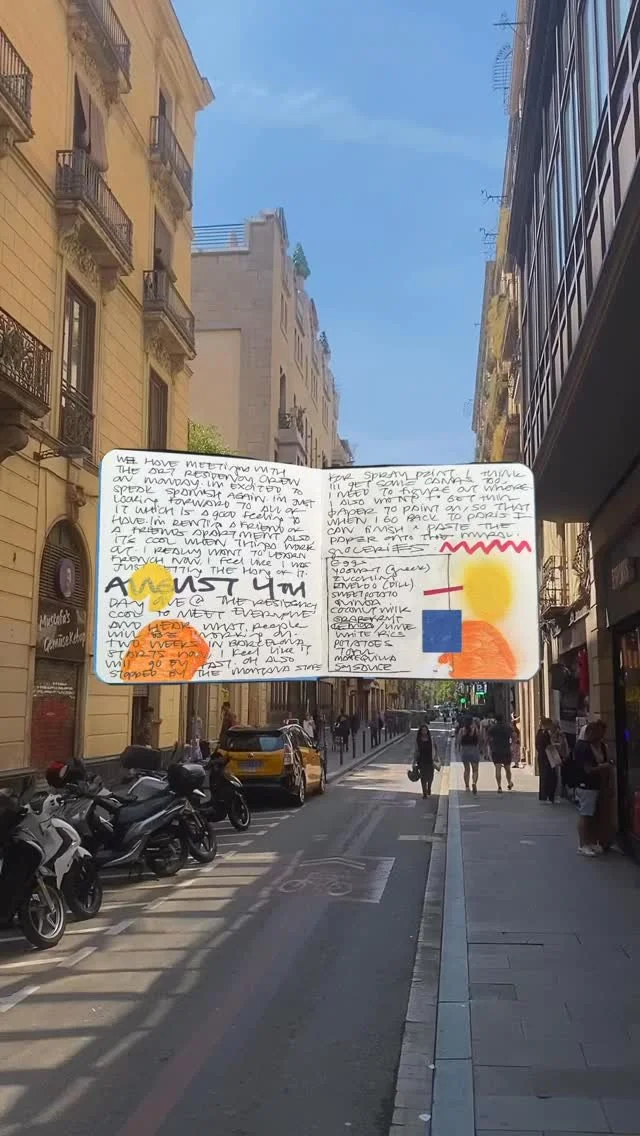 WE HAVE MEETINGS WITH
THE ART RESIDENCY CREW
ON MONDAY. I'M EXCITED TO
SPEAK SPANISH AGAIN. I'M JUST
LOOKING FORWARD TO ALL OF
IT WHICH IS A GOOD FEELING TO
HAVE. I'M RENTING A FRIEND OF
A FRIENDS APARTMENT ALSO
IT'S COOL WHEN THINGS WORK
OUT. I REALLY WANT TO LEARN
FRENCH NOW. I FEEL LIKE I WAS
JUST GETTING THE HANG OF IT.
AUGUST 4TH
DAY @ THE RESIDENCY
COOL TO MEET EVERYONE
AND HEAR WHAT PEOPLE
WILL BE WORKING ON.
TWO WEEKS IN BARCELONA
FEEL LIKE IT
WILL GO BY FAST. OH ALSO
STOPPED BY THE MONTANA STORE
FOR SPRAY PAINT. I THINK
I'LL GET SOME CANVAS TOO.
I NEED TO FIGURE OUT WHERE
ALSO WANT TO GET THIN
PAPER TO PAINT ON SO THAT
WHEN I GO BACK TO PARIS I
CAN FINISH & PASTE THE
PAPER ONTO THE MURAL.
GROCERIES
EGGS
YOGURT (Greek)
ZUCCHINI
ENELDO (DILL)
SWEET POTATO
QUINOA
COCONUT MILK
WHITE RICE
POTATOES
MANTEQUILLA
Mustafa's
Gemüse Kebap